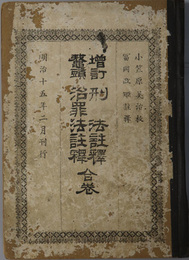 小笠原美治校
富岡次郎註釋
增訂刑法註釋
鼇頭治罪法註釋
合卷
明治十五年二月刊行